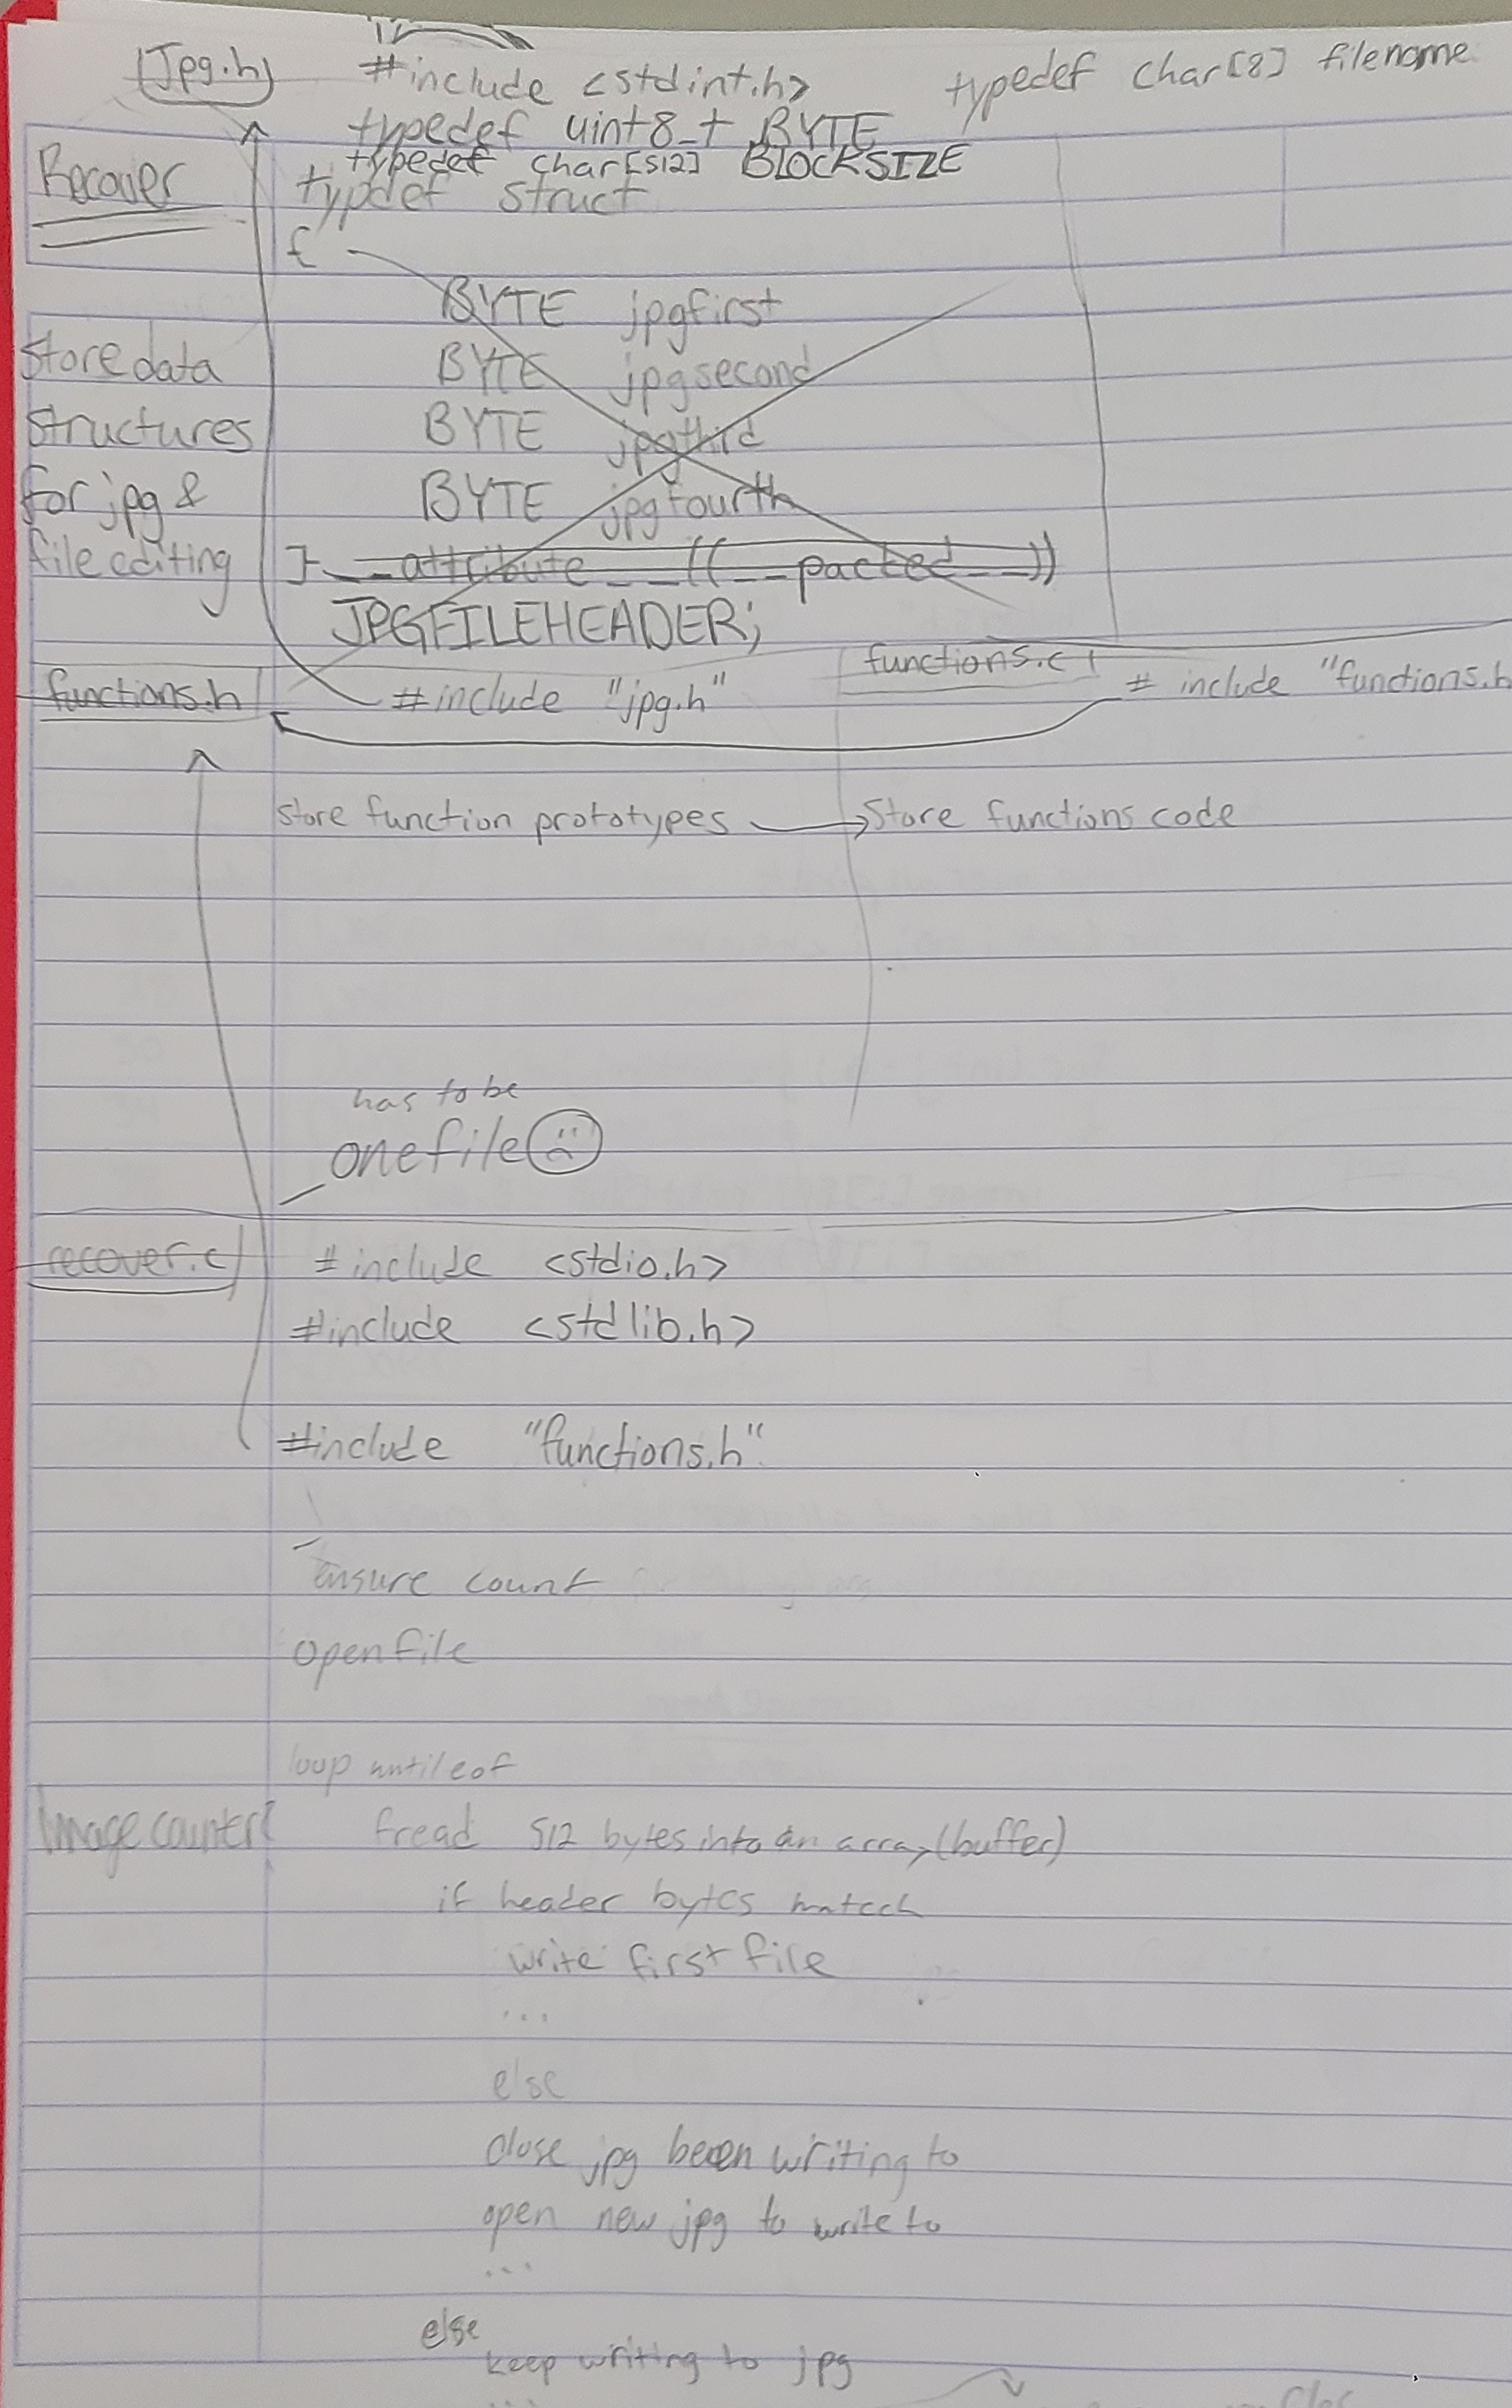 Jpg.h
#include <stdint.h>
typedef char[8] filename
typedef uint8_t BYTE
typedef char[512] BLOCKSIZE
Recover
typdef struct
{
BYTE jpgfirst
BYTE jpgsecond
BYTE jpgthird
BYTE jpgfourth
}__attribute__((__packed__))
JPGFILEHEADER;
Store data
structures
for jpg &
file editing
functions.h
#include "jpg.h"
functions.c
# include "functions.h
store function prototypes
Store functions code
has to be
one file
recover.c
#include <stdio.h>
#include <stdlib.h>
#include "functions.h"
ensure count
open file
loop until eof
Image counter
fread 512 bytes into an array (buffer)
if header bytes match
write first file
...
else
close jpg been writing to
open new jpg to write to
...
else
keep writing to jpg
...